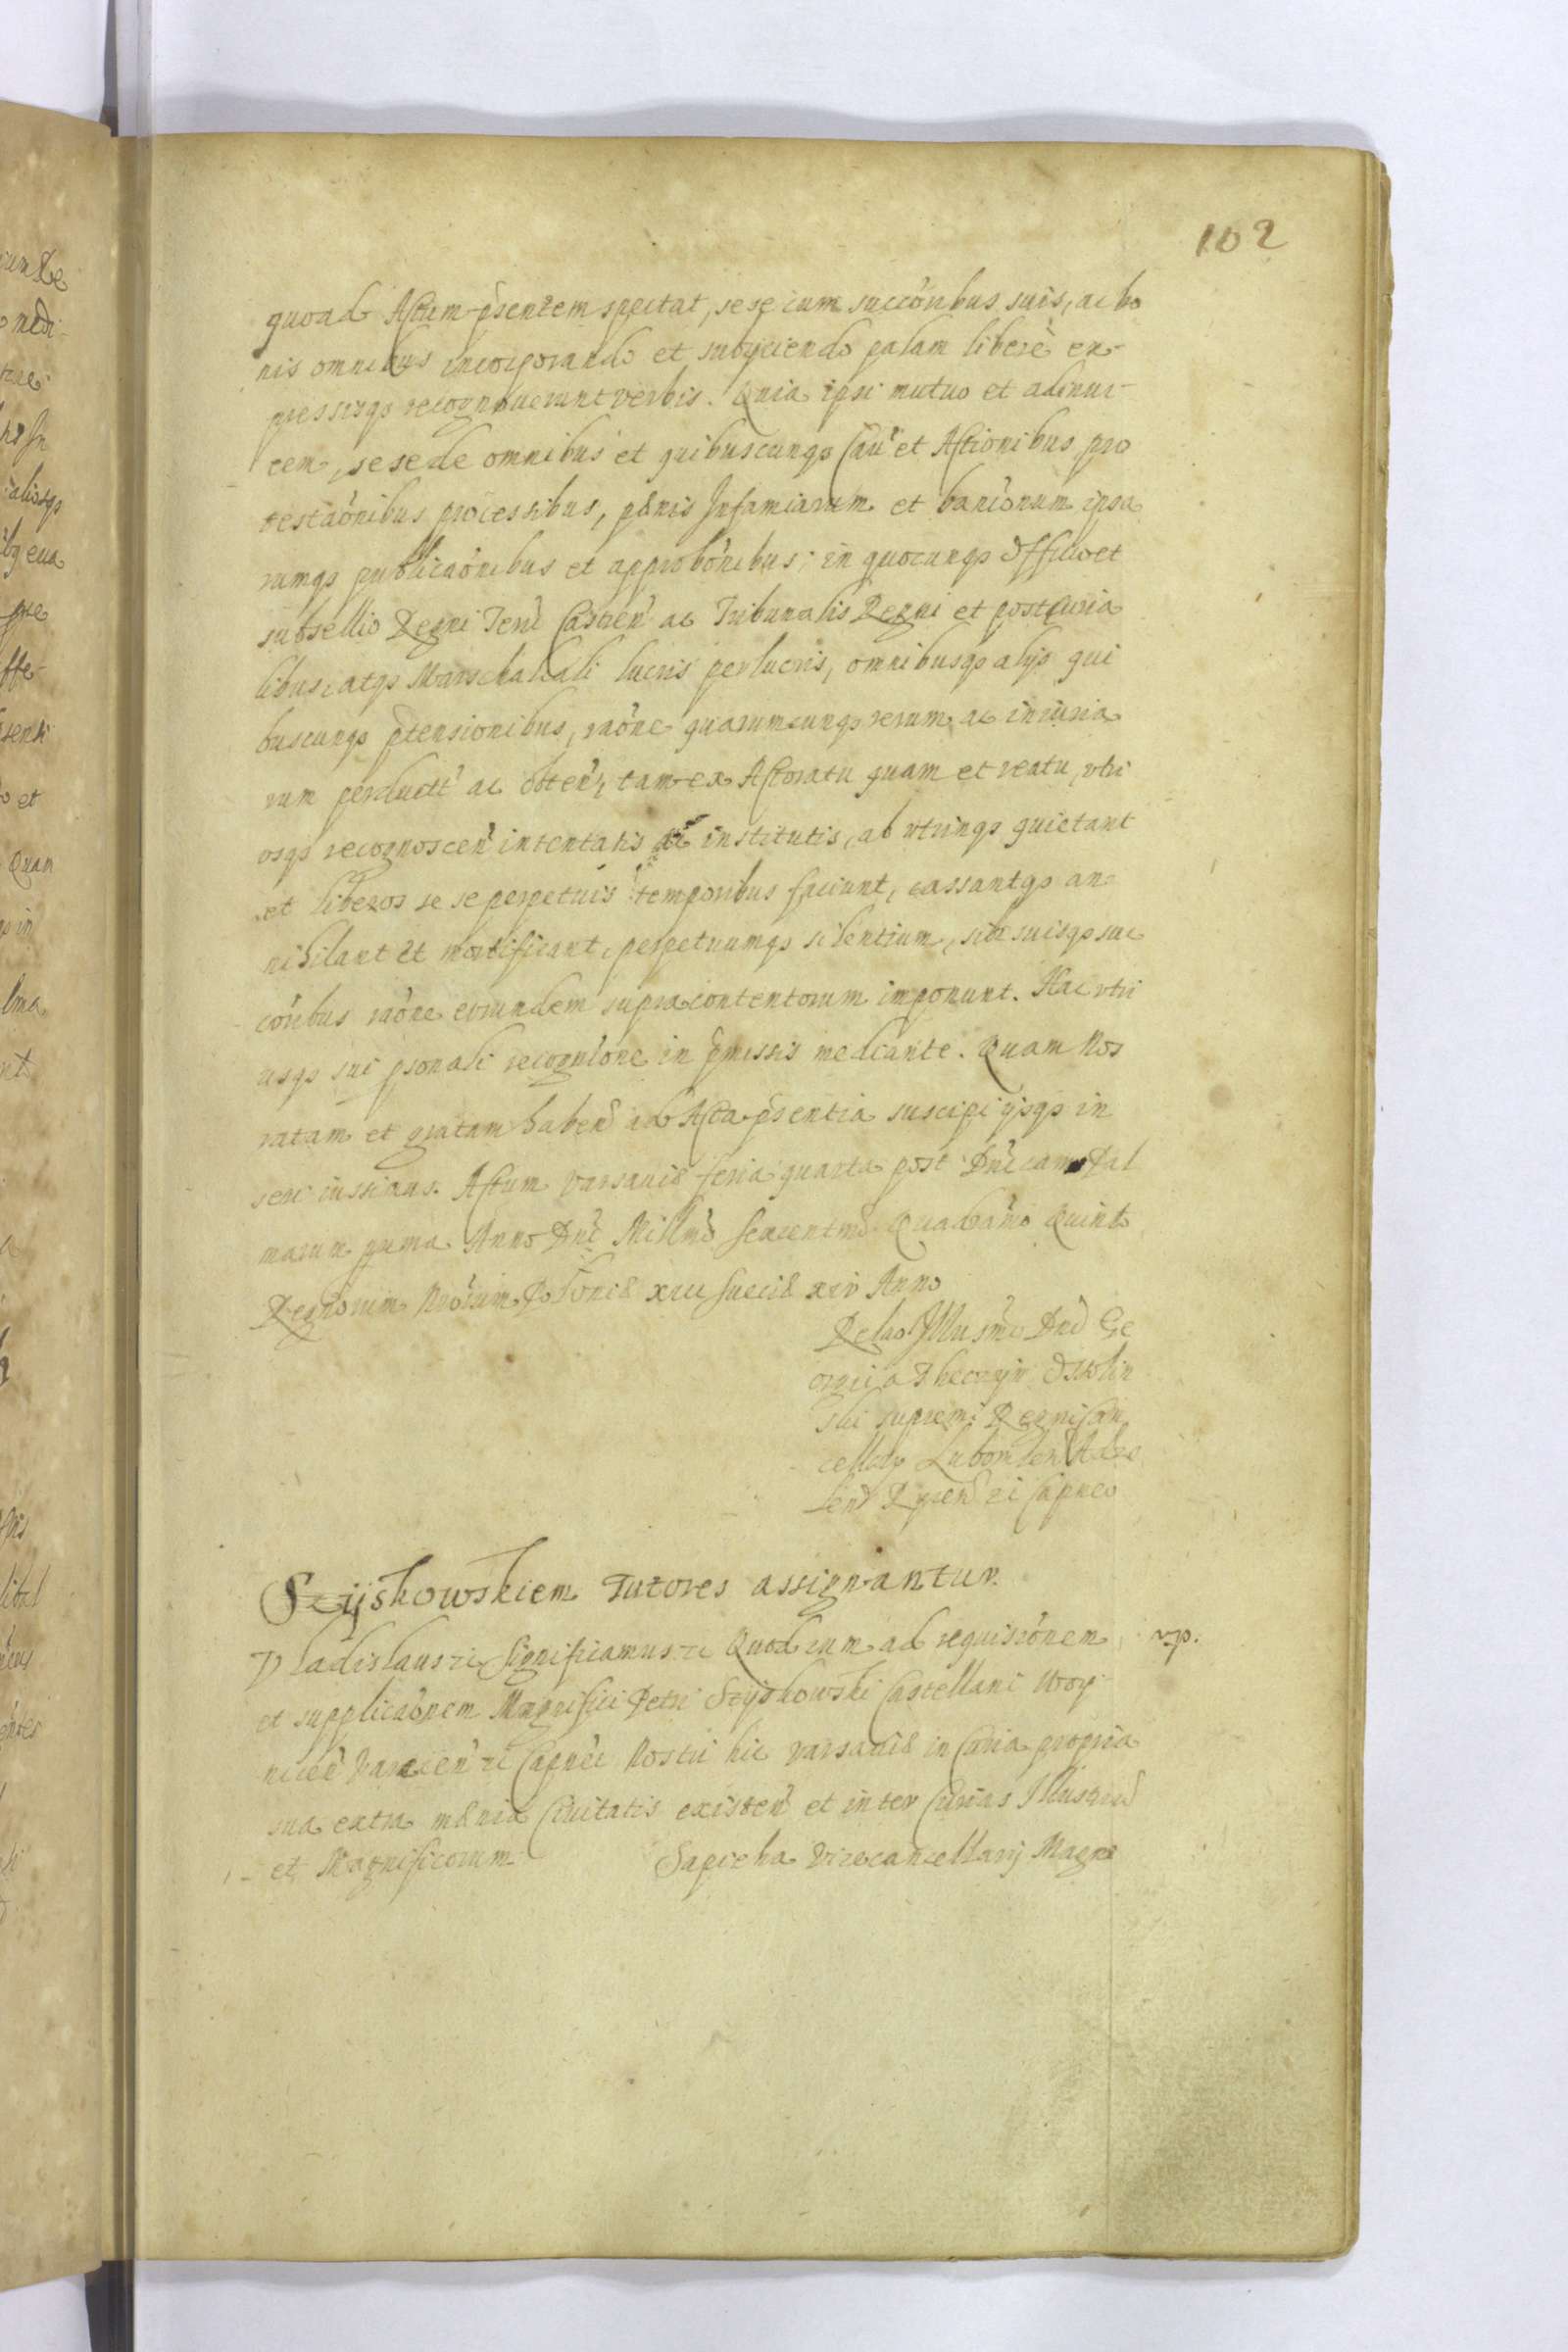 102
quoad Actum p̃sentem spectat, sese cum succõribus suis, ac bo
nis omnibus incorporando et subyciendo palam liberè ex-
pressisqs recognouerunt verbis. Quia ipsi mutuo et adinui-
cem, sese de omnibus et quibuscunqs Cau͂ et Actionibus pro
testaõnibus processibus, pænis Infamiarum et banĩonum ipsa
rumqs publicaõnibus et approbõnibus; in quocunqs Officio et
subsellio Regni Terr̃ Castren̄ ac Tribunalis Regni et postcuria
libus, atqs Marschalcali lucris perlucris, omnibusqs alijs qui
buscunqs p̃tensionibus, raõne quarumcunqs rerum ac iniuria
rum perduct̃ ac obten̄, tam ex Actoratu quam et reatu, vtri
usqs recognoscen̄ intentatis ac institutis, ab vtrinqs quietant
et liberos se se perpetuis temporibus faciunt, cassantqs an-
nihilant et mortificant, perpetuumqs silentium, sibi suisqs suc
cõribus raõne eorundem supracontentorum imponunt. Hac vtri
usqs sui p̃sonali recognĩone in p̃missis mediante. Quam Nos
ratam et gratam haben̄ ad Acta p̃sentia suscipi ijsqs in
seri iussimus. Actum Varsauiæ feria quarta post Dn̄icam Pal
marum p̃xima Anno Dn̄i Millm̄o Sexcentm̄o Quadragm̄o Quinto
Regnorum Nr̃orum Poloniæ XIII Sueciæ XIV Anno
Relao Illusm̄i Dn̄i Ge
orgii a Theczyn Ossolin
ski supremi Regni Can
cellarij Lubomlen̄ Adze
len̄ Rycen̄ zc Capnei
Szyszkowskiem Tutores assignantur.
Vladislaus zc Significamus zc Quod cum ad requisiõnem
vp.
et supplicaõnem Magnifici Petri Szyszkowski Castellani Woy
nicen̄ Varecen̄ zc Capn̄ei Nostri hic Varsauiæ in Curia propria
sua extra mænia Ciuitatis existen̄ et inter Curias Illustrium
et Magnificorum Sapieha Vicecancellarij Magni